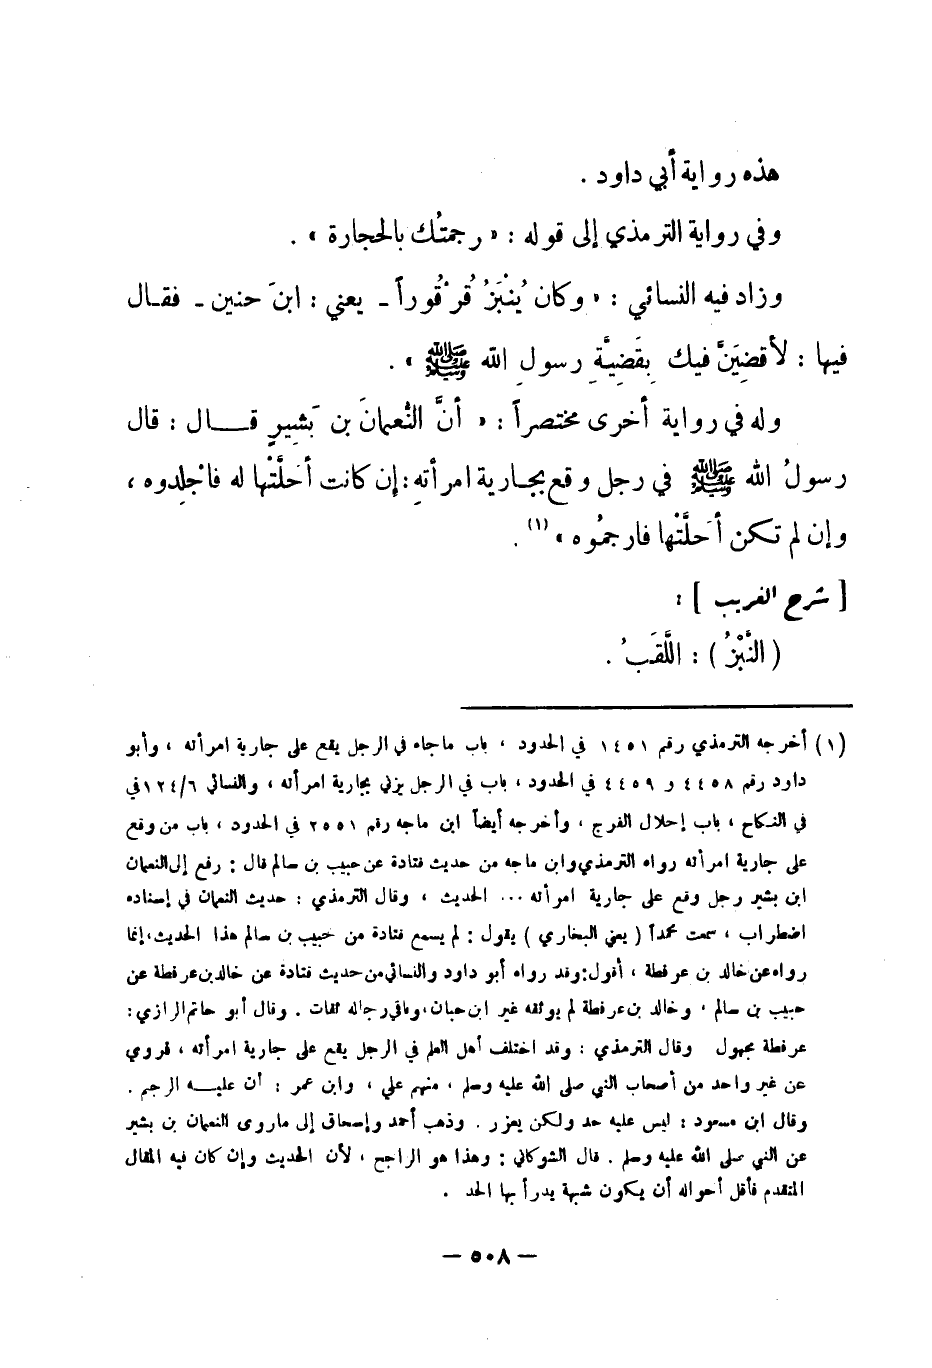 هذه رواية أبي داود .
وفي رواية الترمذي إلى قوله : « رجمتُك بالحجارة » .
وزاد فيه النسائي : « وكان يُنْبَزُ قُرْقُوراً ـ يعني : ابنَ حنين ـ فقال
فيها : لأقضِيَنَّ فيك بِقَضِيَّةِ رسولِ الله ﷺ » .
وله في رواية أخرى مختصراً : « أنَّ النُّعمانَ بن بَشِيرٍ قـــال : قال
رسولُ الله ﷺ في رجل وقع بجارية امرأتهِ : إن كانت أحَلَّتْها له فاجْلِدوه ،
وإن لم تكن أحَلَّتْها فارجمُوه » (١) .
[ شرح الغريب ] :
( النَّبْزُ ) : اللَّقَبُ .
(١) أخرجه الترمذي رقم ١٤٥١ في الحدود ، باب ماجاء في الرجل يقع على جارية امرأته ، وأبو
داود رقم ٤٤٥٨ و ٤٤٥٩ في الحدود ، باب في الرجل يزني بجارية امرأته ، والنسائي ١٢٤/٦ في
في النكاح ، باب إحلال الفرج ، وأخرجه أيضاً ابن ماجه رقم ٢٥٥١ في الحدود ، باب من وقع
على جارية امرأته رواه الترمذي وابن ماجه من حديث قتادة عن حبيب بن سالم قال : رفع إلى النعمان
ابن بشير رجل وقع على جارية امرأته ... الحديث ، وقال الترمذي : حديث النعمان في إسناده
اضطراب ، سمعت محمداً ( يعني البخاري ) يقول : لم يسمع قتادة من حبيب بن سالم هذا الحديث ، إنما
رواه عن خالد بن عرفطة ، أقول : وقد رواه أبو داود والنسائي من حديث قتادة عن خالد بن عرفطة عن
حبيب بن سالم ، وخالد بن عرفطة لم يوثقه غير ابن حبان ، وباقي رجاله ثقات . وقال أبو حاتم الرازي :
عرفطة مجهول وقال الترمذي : وقد اختلف أهل العلم في الرجل يقع على جارية امرأته ، فروي
عن غير واحد من أصحاب النبي صلى الله عليه وسلم ، منهم علي ، وابن عمر : أن عليـــه الرجم .
وقال ابن مسعود : ليس عليه حد ولكن يعزر . وذهب أحمد وإسحاق إلى ماروى النعمان بن بشير
عن النبي صلى الله عليه وسلم . قال الشوكاني : وهذا هو الراجح ، لأن الحديث وإن كان فيه المقال
المتقدم فأقل أحواله أن يكون شبهة يدرأ بها الحد .
— ٥٠٨ —